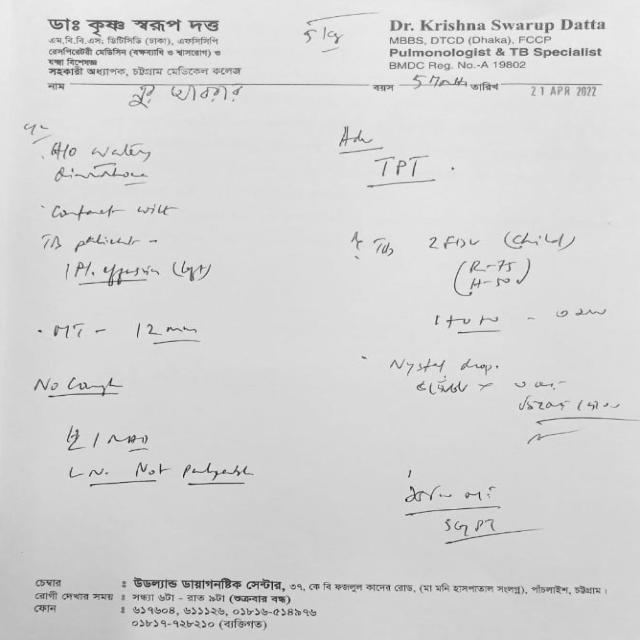 ডাঃ কৃষ্ণ স্বরূপ দত্ত
এম.বি.বি.এস; ডিটিসিডি (ঢাকা), এফসিসিপি
রেসপিরেটরী মেডিসিন (বক্ষব্যাধি ও শ্বাসরোগ) ও
যক্ষা বিশেষজ্ঞ
সহকারী অধ্যাপক, চট্টগ্রাম মেডিকেল কলেজ
Dr. Krishna Swarup Datta
MBBS, DTCD (Dhaka), FCCP
Pulmonologist & TB Specialist
BMDC Reg. No.-A 19802
নাম নুর আকতার বয়স 5 Month তারিখ 21 APR 2022
H/O watery
diarrhoea
Contact with
TB patient -
Pl. effusion (left)
MT - 12 mm
No Cough
NAD
L.N. Not palpable
Adv
TPT
2 FDC (Child)
(R-75
H-50)
Nystat drop.
SGPT
চেম্বার : উডল্যান্ড ডায়াগনষ্টিক সেন্টার, ৩৭, কে বি ফজলুল কাদের রোড, (মা মনি হাসপাতাল সংলগ্ন), পাঁচলাইশ, চট্টগ্রাম।
রোগী দেখার সময় : সন্ধ্যা ৬টা - রাত ৯টা (শুক্রবার বন্ধ)
ফোন : ৬১৭৬০৪, ৬১১১২৬, ০১৮১৬-৫১৪৯৭৬
০১৮১৭-৭২৮২১০ (ব্যক্তিগত)